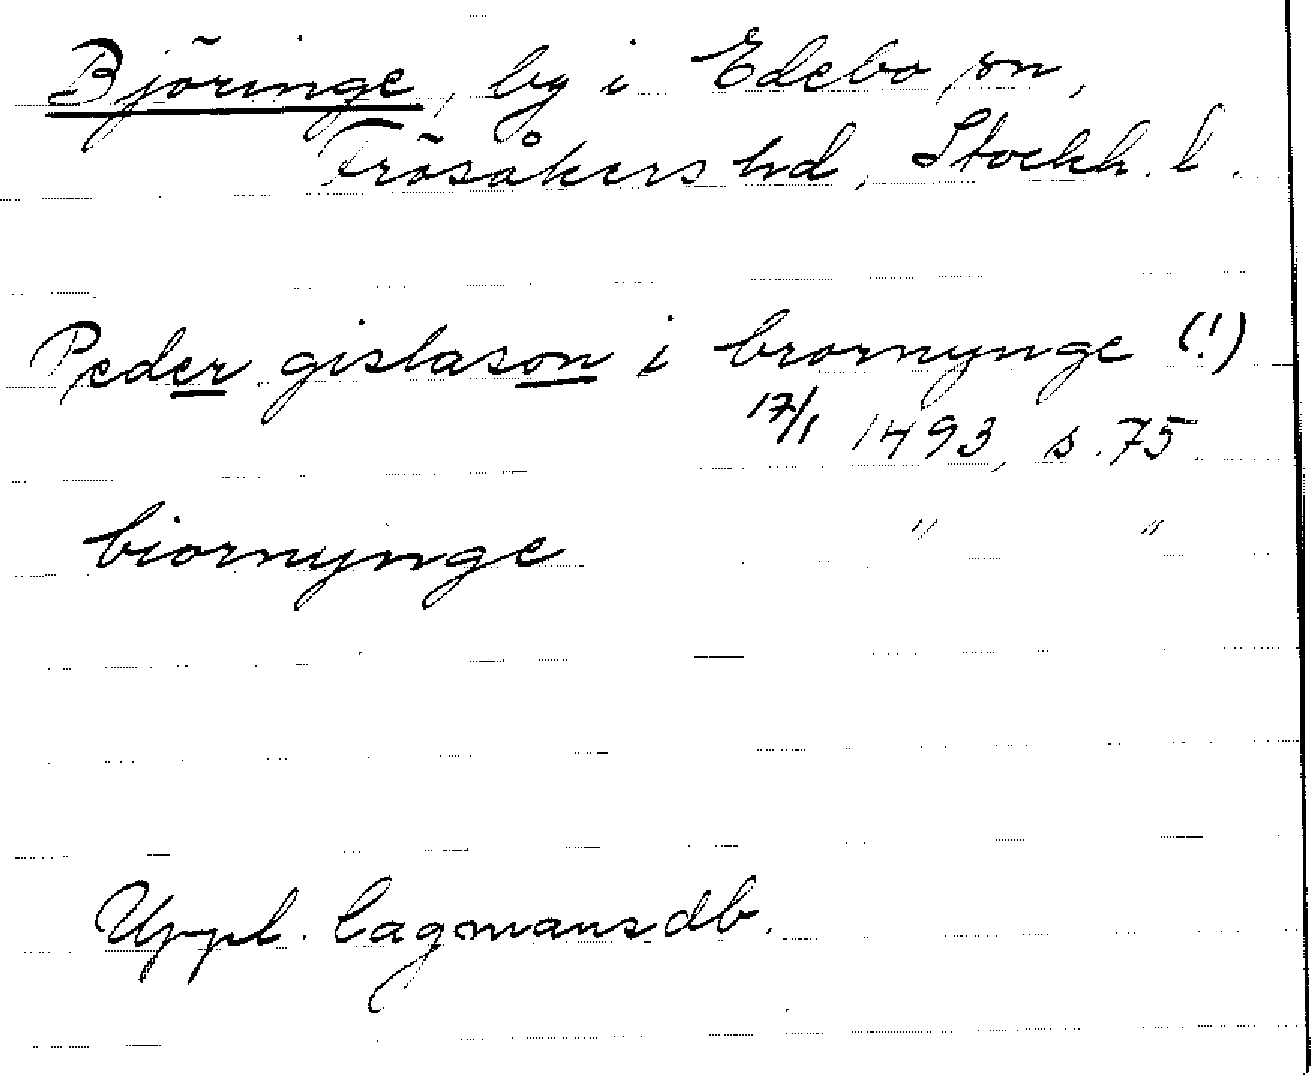 Björinge, by i Edebo sn,
Frösåkers hd, Stockh. l.
Peder gislason i brornynge (!)
17/1 1493, s. 75
biornynge " "
Uppl. lagmansdb.